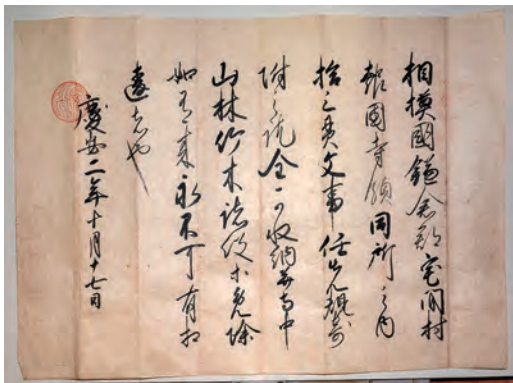 相模國鎌倉郡宅間村
報國寺領同所之内
拾三貫文事任先規寄
附之訖全可収納并寺中
山林竹木諸役等免除
如有来永不可有相
違者也
慶安二年十月十七日